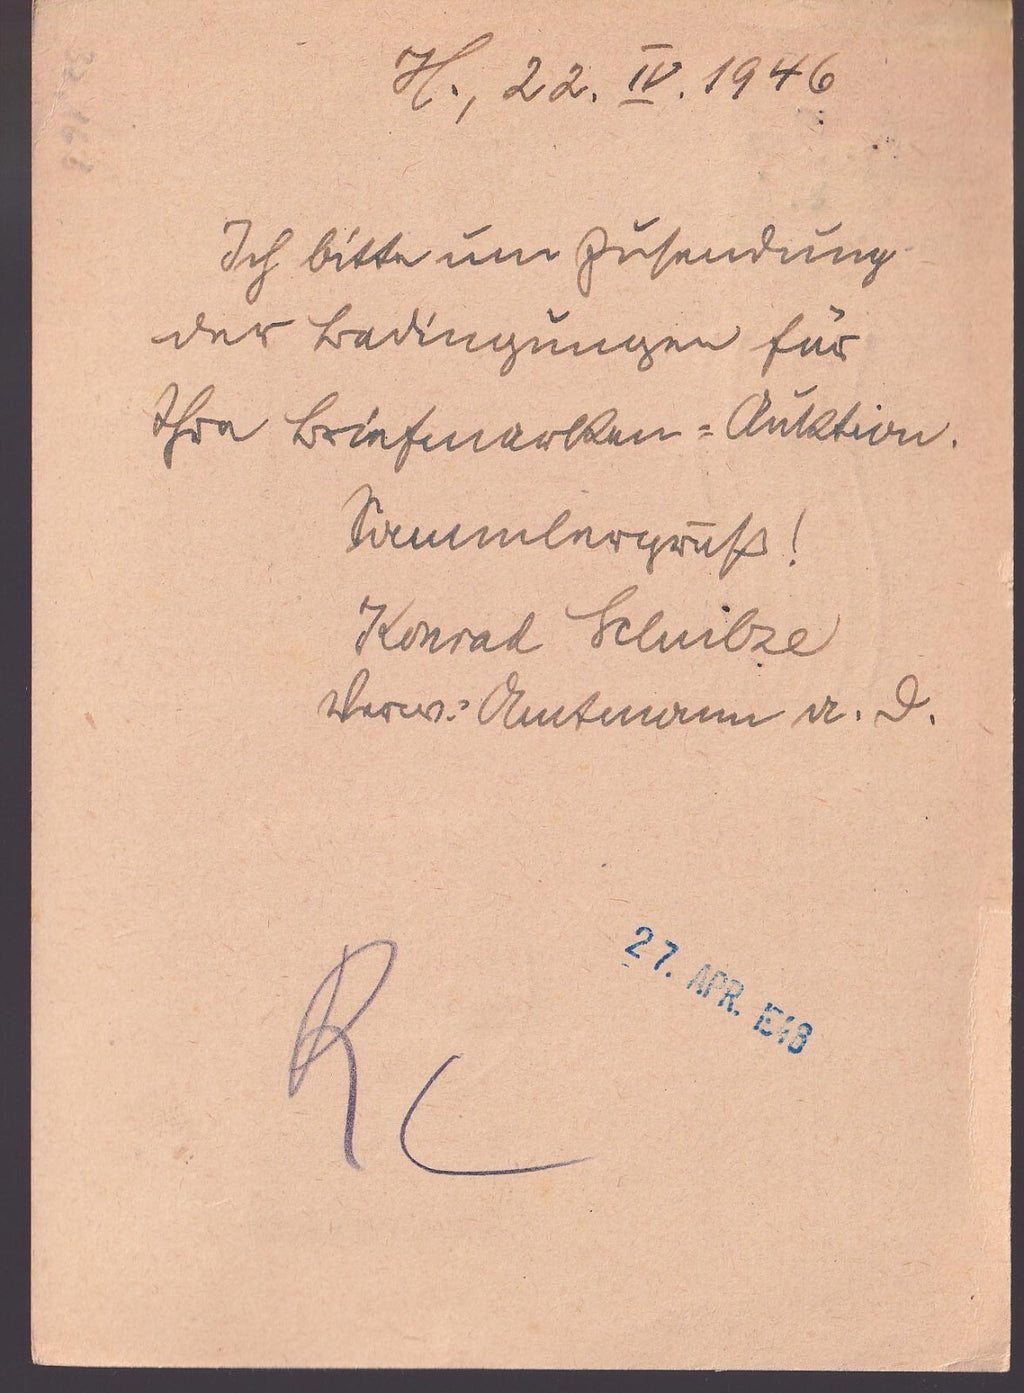 H., 22. IV. 1946
Ich bitte um Zusendung
der Bedingungen für
Ihre Briefmarken=Auktion.
Sammlergruß!
Konrad
Verw.=Amtmann a. D.
27. APR. 1946
R